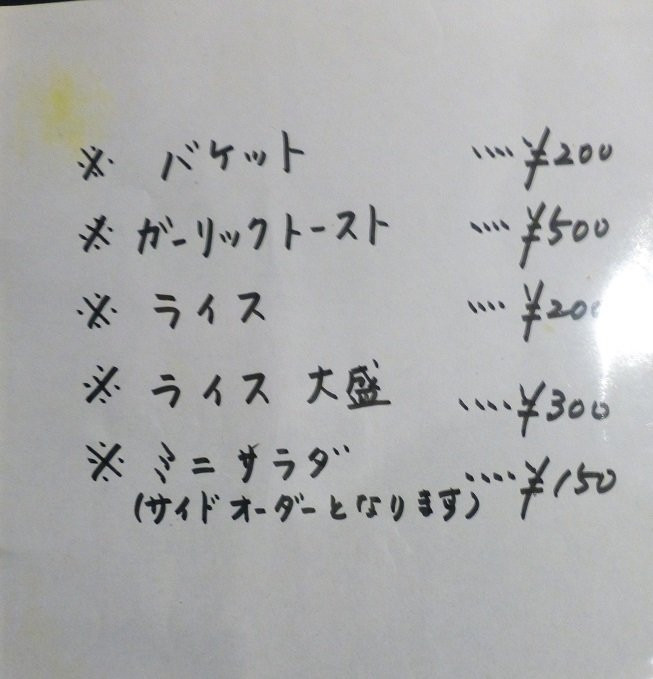 ※ バケット ....¥200
※ ガーリックトースト ....¥500
※ ライス ....¥200
※ ライス 大盛 ....¥300
※ ミニサラダ ....¥150
(サイドオーダーとなります)